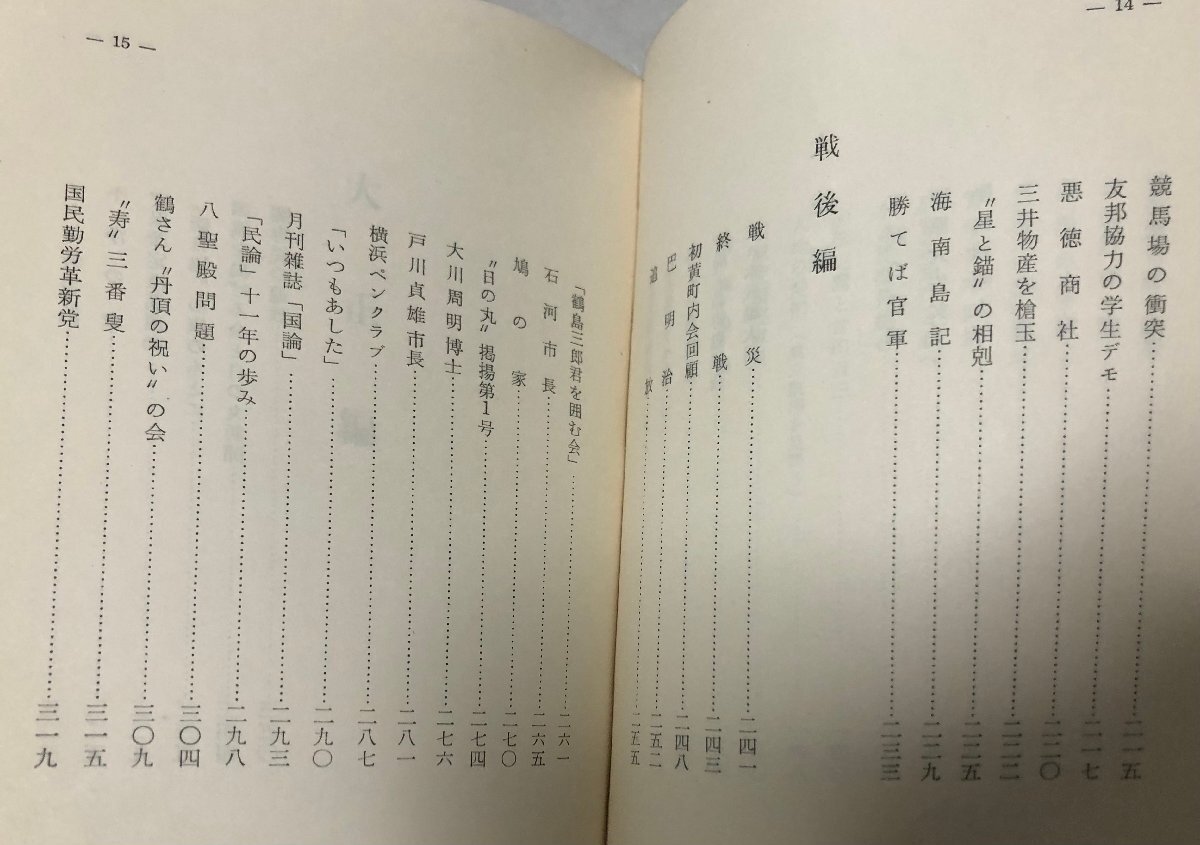 — 14 —
競馬場の衝突……二一五
友邦協力の学生デモ……二一七
悪徳商社……二二〇
三井物産を槍玉……二二二
〝星と錨〟の相剋……二二五
海南島記……二二九
勝てば官軍……二三三
戦後編
戦災……二四一
終戦……二四三
初黄町内会回顧……二四八
巴明治……二五二
追放……二五五
— 15 —
「鶴島三郎君を囲む会」……二六一
石河市長……二六五
鳩の家……二七〇
〝日の丸〟掲揚第1号……二七四
大川周明博士……二七六
戸川貞雄市長……二八一
横浜ペンクラブ……二八七
「いつもあした」……二九〇
月刊雑誌「国論」……二九三
「民論」十一年の歩み……二九八
八聖殿問題……三〇四
鶴さん〝丹頂の祝い〟の会……三〇九
〝寿〟三番叟……三一五
国民勤労革新党……三一九